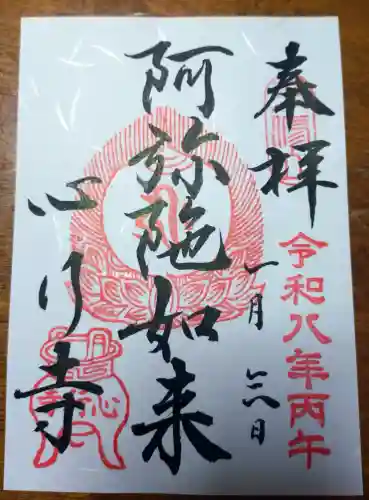 奉拝
令和八年丙午
一月六日
阿弥陀如来
心行寺